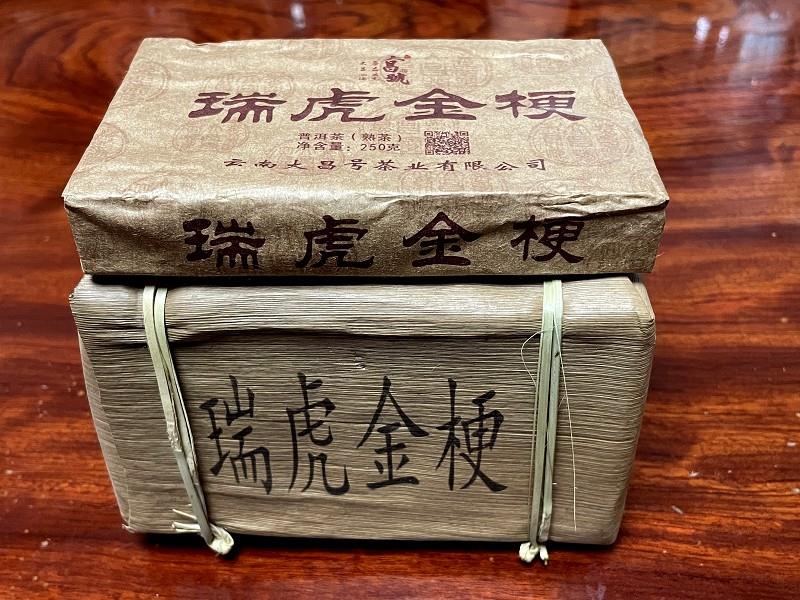 昌號
瑞虎金梗
普洱茶（熟茶）
净含量：250克
云南大昌号茶业有限公司
瑞虎金梗
瑞虎金梗